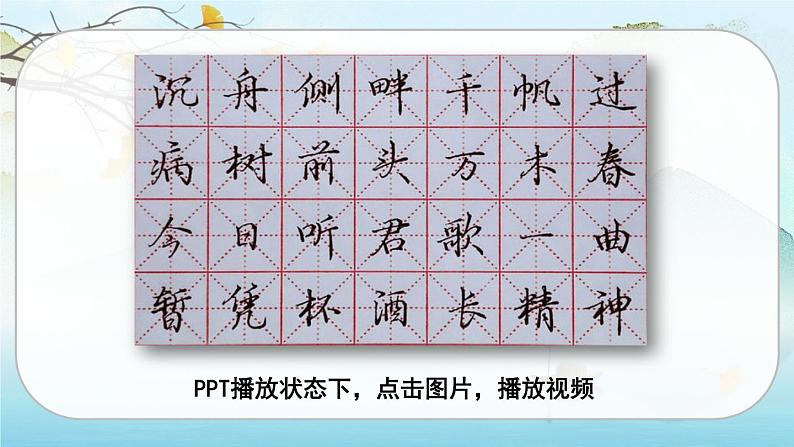 沉舟侧畔千帆过
病树前头万木春
今日听君歌一曲
暂凭杯酒长精神
PPT播放状态下，点击图片，播放视频